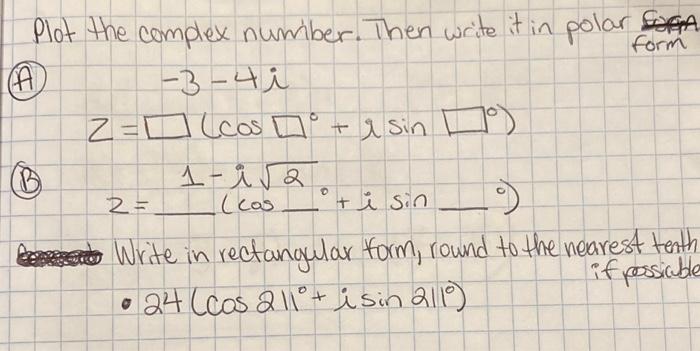 Plot the complex number. Then write it in polar
form
A
-3-4i
Z=□(cos □° + i sin □°)
B
1-i√2
z=___(cos ___° + i sin ___°)
Write in rectangular form, round to the nearest tenth
if possicble
• 24(cos 211°+ i sin 211°)